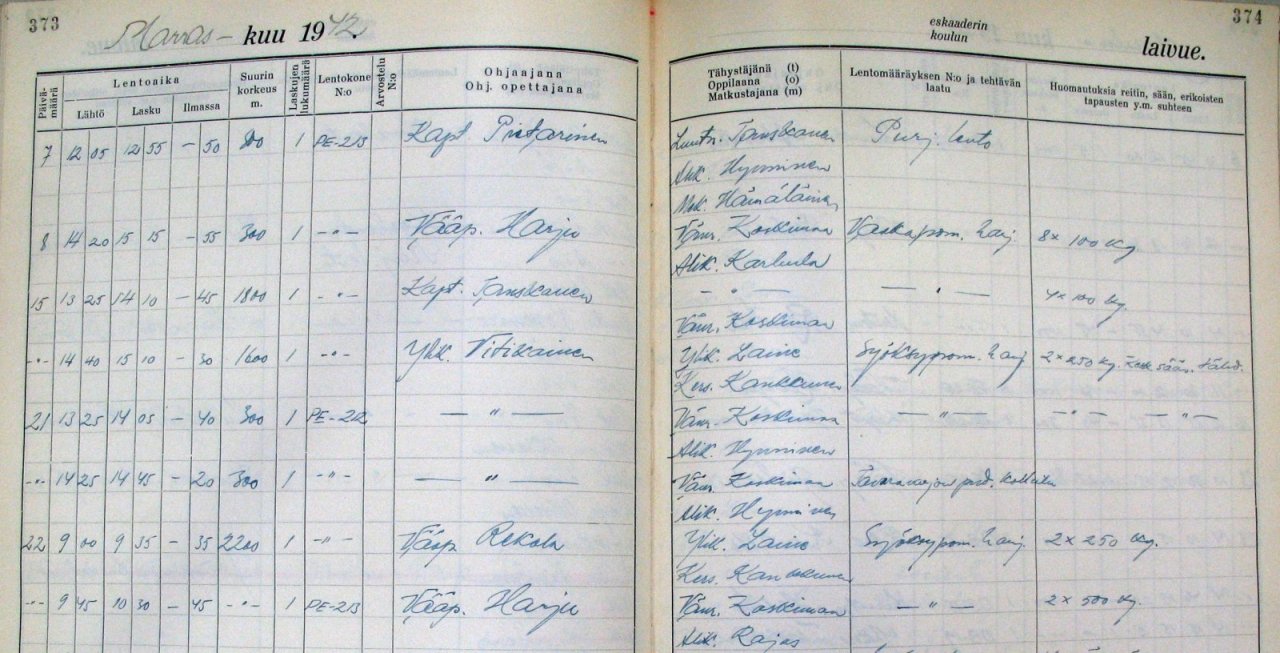 373
Marras- kuu 1942.
Päivä-määrä
Lentoaika
Lähtö Lasku Ilmassa
Suurin korkeus m.
Laskujen lukumäärä
Lentokone N:o
Arvostelu N:o
Ohjaajana
Ohj. opettajana
374
eskaaderin
koulun
laivue.
Tähystäjänä (t)
Oppilaana (o)
Matkustajana (m)
Lentomääräyksen N:o ja tehtävän laatu
Huomautuksia reitin, sään, erikoisten tapausten y.m. suhteen
7 12 05 12 55 – 50 800 1 PE-213 Kapt. Pietarinen Luutn. Tanskanen Purj. lento
Alik. Hynninen
Mek. Hämäläinen
8 14 20 15 15 – 55 300 1 –"– Vääp. Harju Vänr. Koskinen harj. 8 x 100 kg
Alik. Karhula
15 13 25 14 10 – 45 1800 1 –"– Kapt. Tanskanen — " — — " — 4 x 100 kg.
Vänr. Koskinen
–"– 14 40 15 10 – 30 1600 1 –"– Ylik. Vitikainen Ylik. Laine Syöksypom. harj. 2 x 250 kg.
Kers. Kankkunen
21 13 25 14 05 – 40 300 1 PE-212 — " — Vänr. Koskinen — " — –"– –"–
Alik. Hynninen
–"– 14 25 14 45 – 20 300 1 –"– — " — Vänr. Koskinen
Alik. Hynninen
22 9 00 9 35 – 35 2200 1 –"– Vääp. Rekola Ylik. Laine Syöksypom. harj. 2 x 250 kg.
Kers. Kankkunen
–"– 9 45 10 30 – 45 –"– 1 PE-213 Vääp. Harju Vänr. Koskinen — " — 2 x 500 kg.
Alik. Rajas